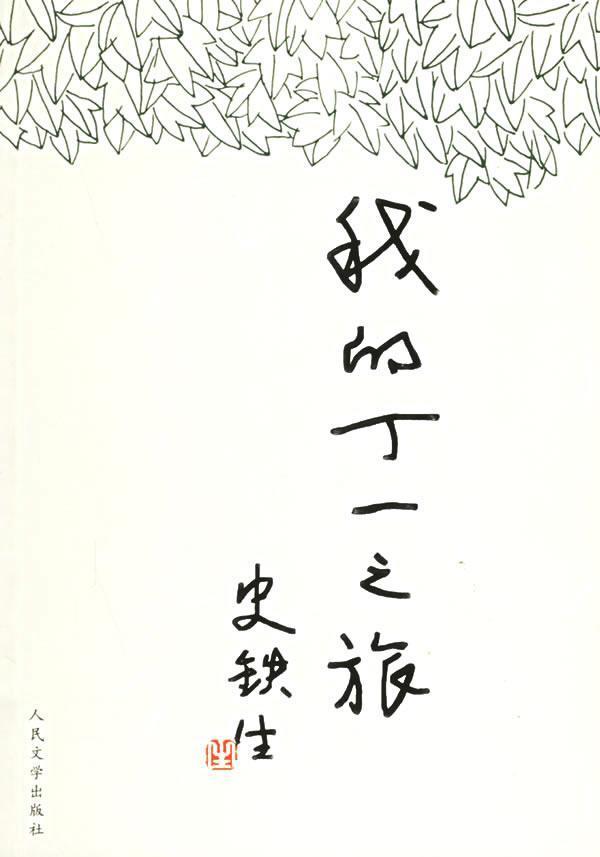 我的丁一之旅
史铁生
生
人民文学出版社